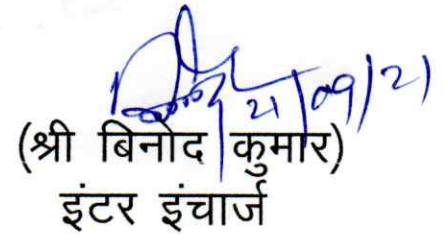 21/09/21
(श्री बिनोद कुमार)
इंटर इंचार्ज